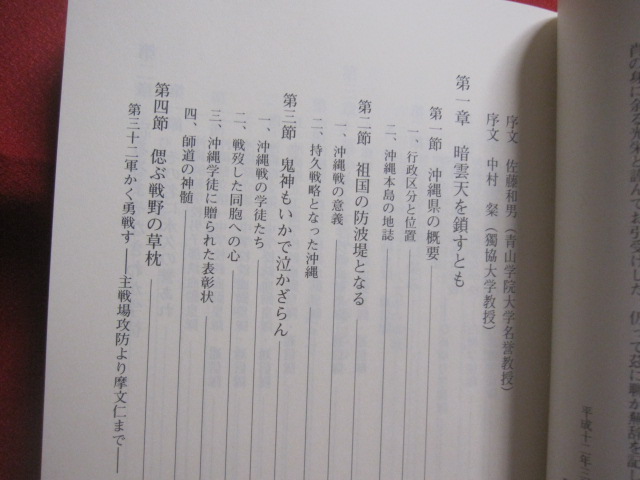 平成十二年三
序文 佐藤和男(青山学院大学名誉教授)
序文 中村 粲(獨協大学教授)
第一章 暗雲天を鎖すとも
第一節 沖縄県の概要
一、行政区分と位置
二、沖縄本島の地誌
第二節 祖国の防波堤となる
一、沖縄戦の意義
二、持久戦略となった沖縄
第三節 鬼神もいかで泣かざらん
一、沖縄戦の学徒たち
二、戦歿した同胞への心
三、沖縄学徒に贈られた表彰状
四、師道の神髄
第四節 偲ぶ戦野の草枕
第三十二軍かく勇戦す――主戦場攻防より摩文仁まで――